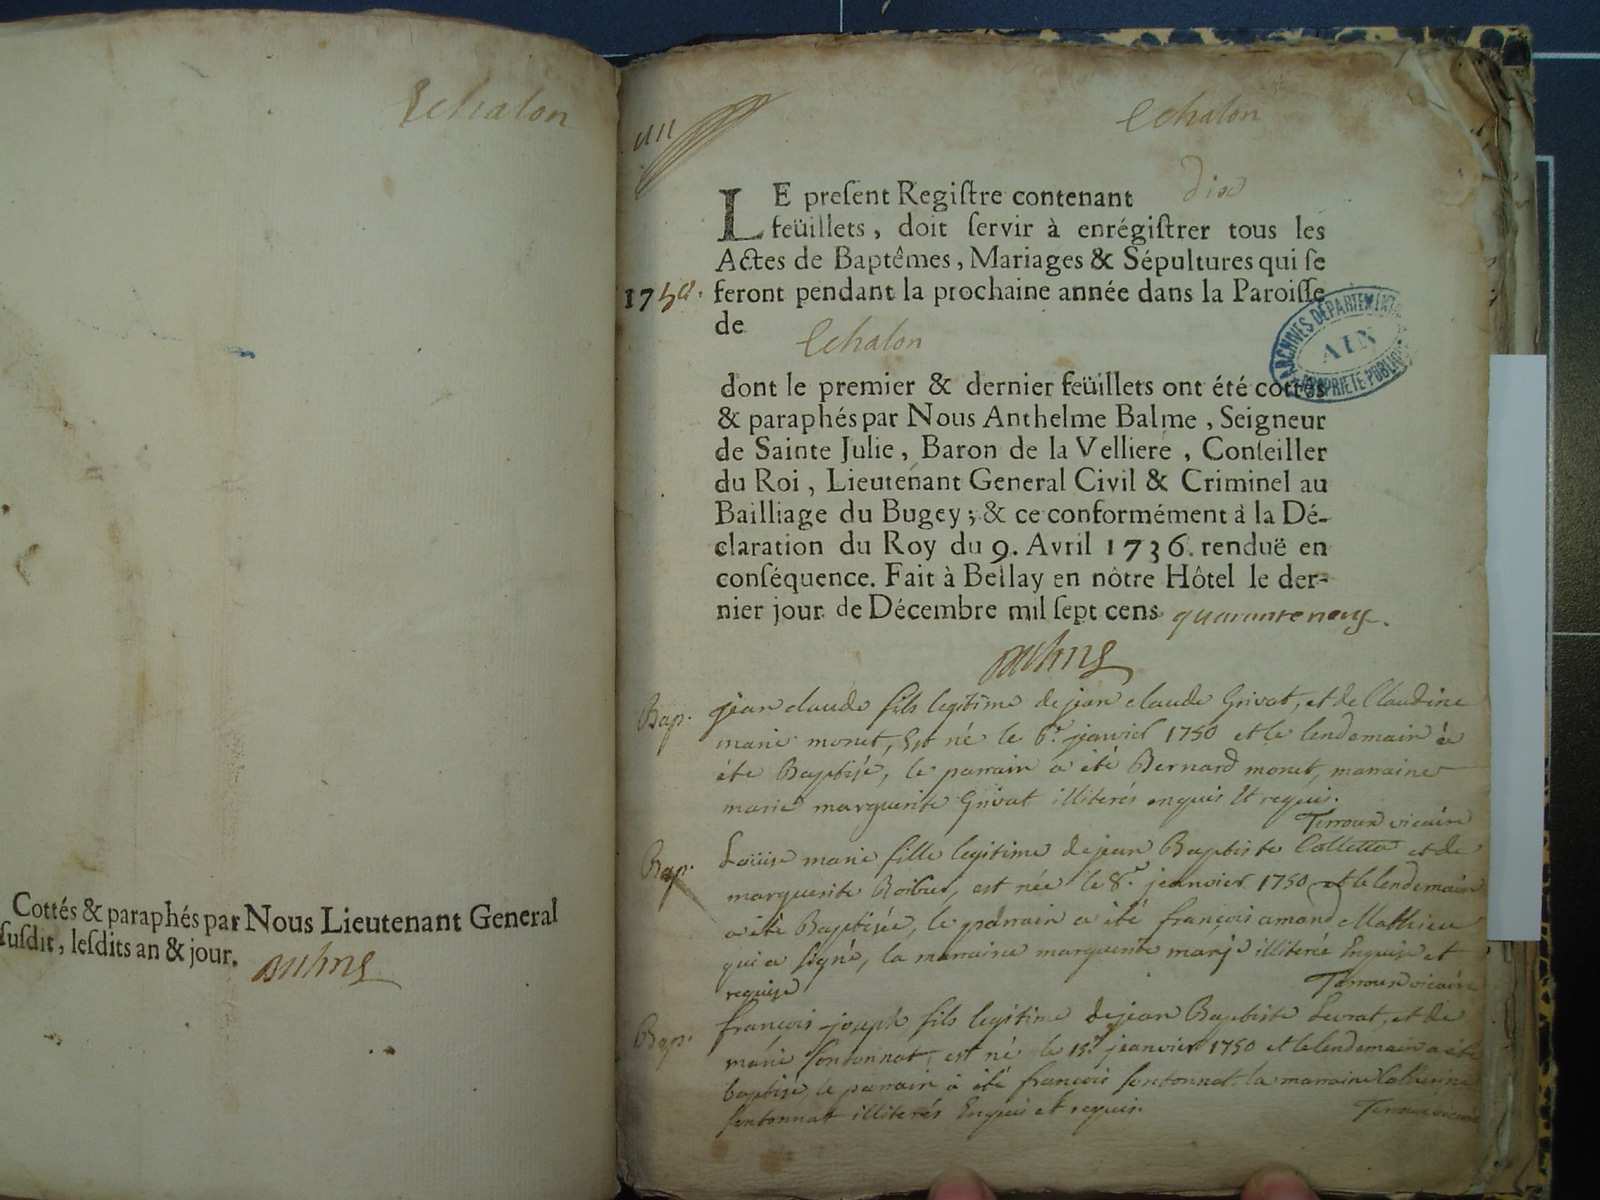 Echalon
Cottés & paraphés par Nous Lieutenant General
susdit, lesdits an & jour.
Echalon
LE present Registre contenant dix
feüillets, doit servir à enrégistrer tous les
Actes de Baptêmes, Mariages & Sépultures qui se
1750. feront pendant la prochaine année dans la Paroisse
de
Echalon
ARCHIVES DÉPARTEMENTALES
AIN
PROPRIETE PUBLIQUE
dont le premier & dernier feüillets ont été cottés
& paraphés par Nous Anthelme Balme, Seigneur
de Sainte Julie, Baron de la Velliere, Conseiller
du Roi, Lieutenant General Civil & Criminel au
Bailliage du Bugey; & ce conformément à la Dé-
claration du Roy du 9. Avril 1736. renduë en
conséquence. Fait à Bellay en nôtre Hôtel le der-
nier jour de Décembre mil sept cens quarante neuf.
Bap. jean claude fils legitime de jean claude Grivat, et de Claudine
marie monet, Est né le 6e janvier 1750 et le lendemain à
été Baptisé, le parrain a été Bernard monet, marraine
marie marguerite Grivat illiterés enquis Et requis.
vicaire
Bap. Loüise marie fille legitime de jean Baptiste Collettaz et de
marguerite, est née le 8e jeanvier 1750 et le lendemain
a été Baptisée, le parrain a été françois amand Mathieu
qui a signé, la marraine marguerite illiterée Enquise et
requise
vicaire
Bap. françois joseph fils legitime de jean Baptiste Levrat, et de
marie sontonnat, est né le 15e jeanvier 1750 et le lendemain a été
baptisé, le parrain à été francois sontonnat la marraine Catherine
sontonnat illiterés Enquis et requis.